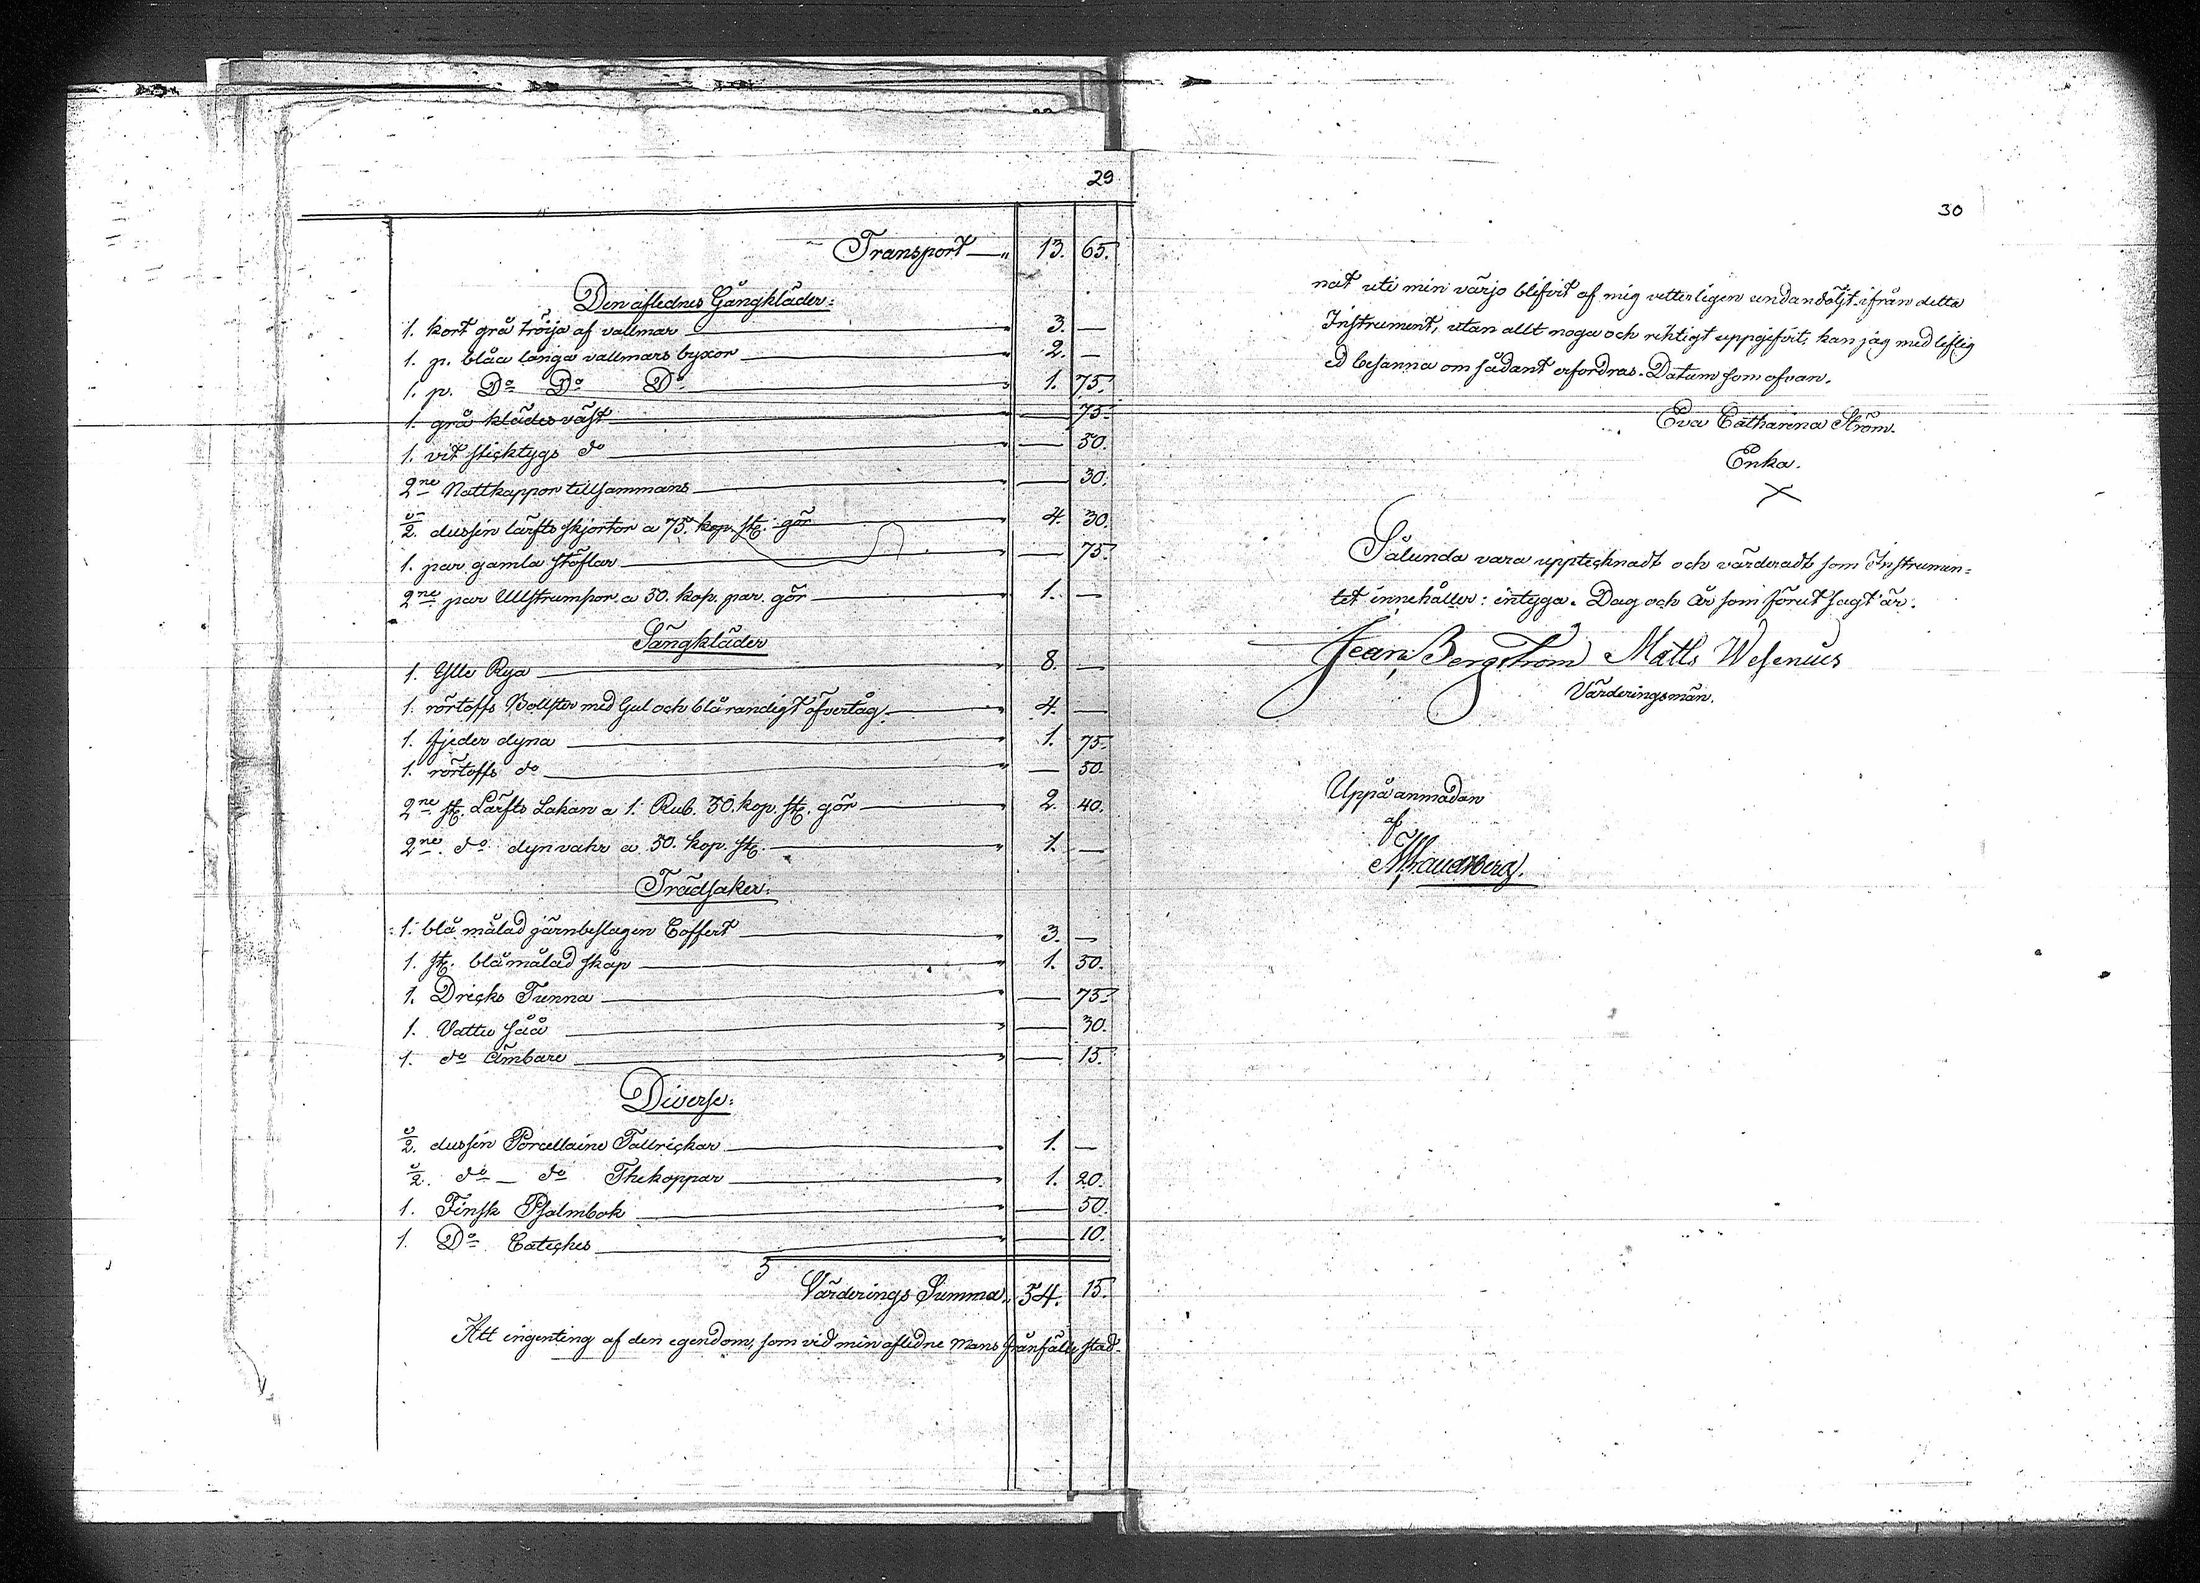 29
Transport — " 13. 65.
Den aflednes Gångkläder:
1. kort grå tröija af vallmar — 3. —
1. p. blåa långa vallmars byxor — 2. —
1. p. Do Do Do — 1. 75.
1. grå klädes väst — — 75.
1. vit sticktygs do — — 50.
2ne Nattkappor tillsammans — — 30.
½ dussin lärfts skjortor a 75. kop. st. gör — 4. 30.
1. par gamla stöflar — — 75.
2ne par Ullstrumpor a 50. kop. par. gör — 1. —
Sängkläder
1. Ylle Rya — 8. —
1. rörtoffs Bollster med Gul och blå randigt öfvertåg — 4. —
1. fjeder dyna — 1. 75.
1. rörtoffs do — — 50.
2ne st. Lärfts Lakan a 1. Rub. 50. kop. st. gör — 2. 40.
2ne do dynvahr a 50. kop. st. — 1. —
Trädsaker:
1. blå målad järnbeslagen Coffert — 3. —
1. st. blåmålad skåp — 1. 50.
1. Dricks Tunna — — 75.
1. Vattu såå — — 30.
1. do ämbare — — 15.
Diverse:
½ dussin Porcellaine Tallrickar — 1. —
½ do — do Thekoppar — 1. 20.
1. Finsk Psalmbok — — 50.
1. Do Cateches — — 10.
Värderings Summa " 54. 15.
Att ingenting af den egendom, som vid min aflidne Mans frånfälle stad-
30
nat uti min värjo blifvit af mig vetterligen undandöljt ifrån detta
Instrument, utan allt noga och riktigt uppgifvit, kan jag med liflig
ed besanna om sådant erfordras. Datum som ofvan.
Eva Catharina Ström.
Enka.
X
Sålunda vara upptecknadt och värderadt som Instrumen=
tet innehåller: intyga. Dag och År som förut sagt är.
Jean Bergström Matts Wesenius
Värderingsmän.
Uppå anmodan
af